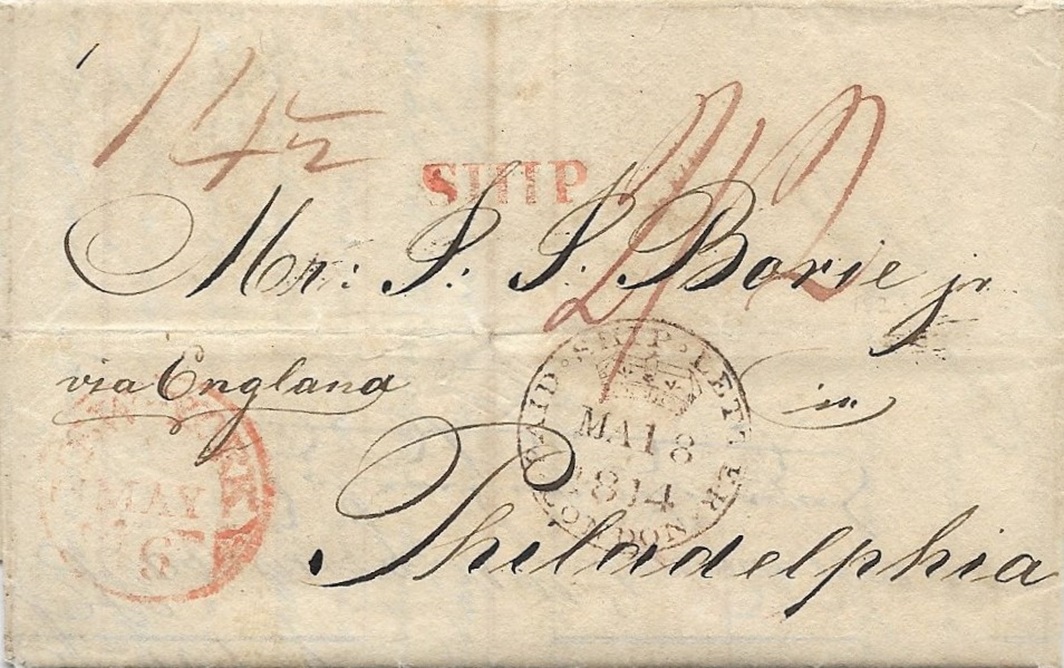 14½
SHIP
2/2
Mr: S. S. Borie jr.
via England
in
Philadelphia
PAID · SHIP · LETTER · LONDON
MA 18
1814
NEW YORK
MAY
6